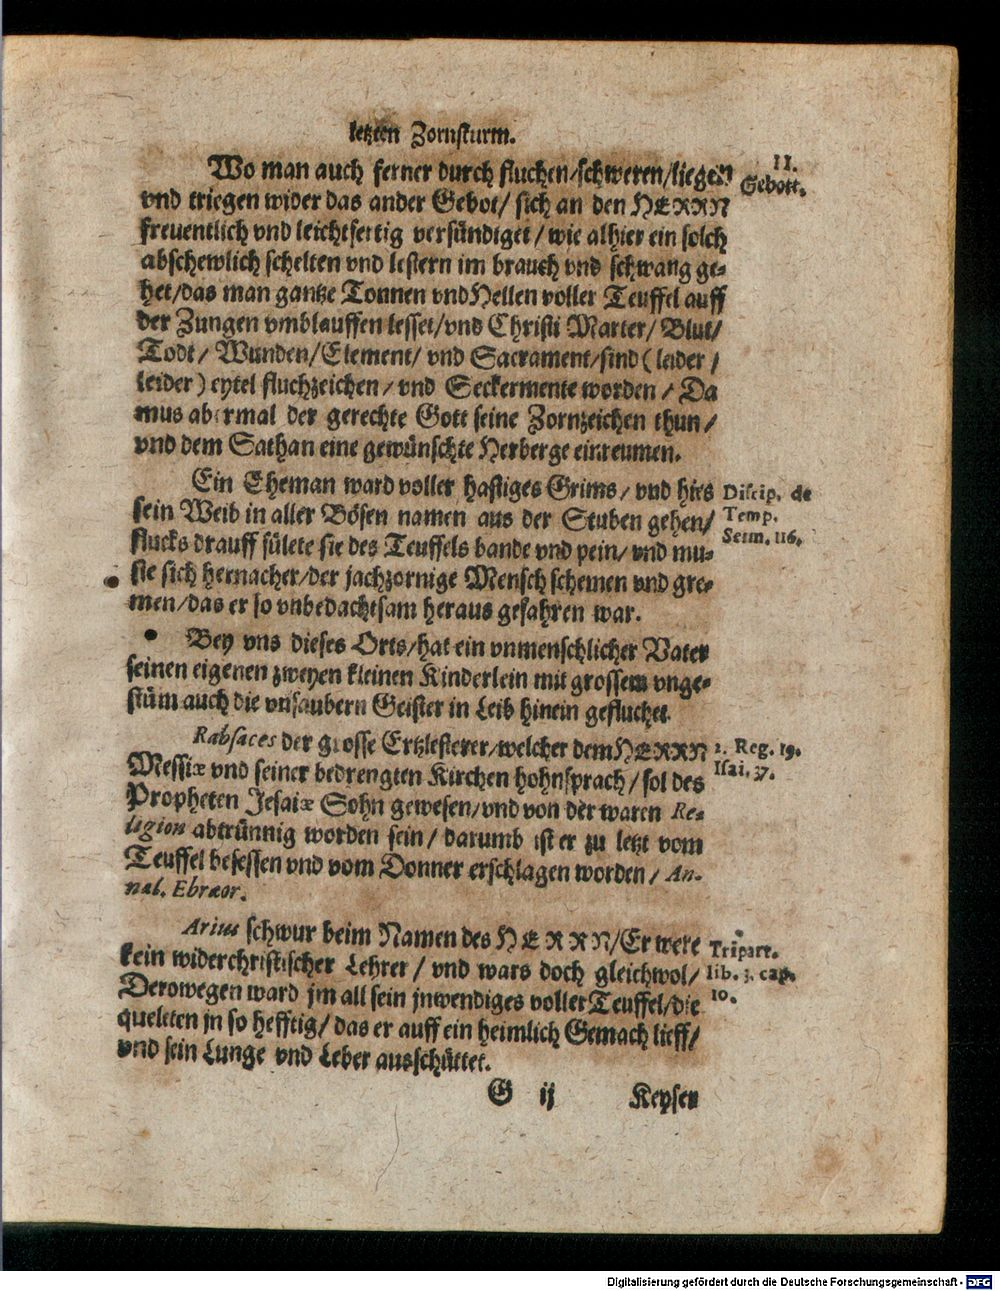 letzten Zornsturm.
Wo man auch ferner durch fluchen/schweren/liegen
vnd triegen wider das ander Gebot/ sich an den HERRN
freuentlich vnd leichtfertig versündiget/ wie alhier ein solch
abschewlich schelten vnd lestern im brauch vnd schwang ge-
het/das man gantze Tonnen vnd Hellen voller Teuffel auff
der Zungen vmblauffen lesset/vnd Christi Marter/ Blut/
Todt/ Wunden/Element/ vnd Sacrament/sind (leider/
leider) eytel fluchzeichen/ vnd Seckermente worden/ Da
mus abermal der gerechte Gott seine Zornzeichen thun/
vnd dem Sathan eine gewünschte Herberge einreumen.
11.
Gebott.
Ein Eheman ward voller hastiges Grims/ vnd hies
sein Weib in aller Bösen namen aus der Stuben gehen/
flucks drauff fülete sie des Teuffels bande vnd pein/ vnd mu-
ste sich hernacher/der jachzornige Mensch schemen vnd gre-
men/das er so vnbedachtsam heraus gefahren war.
Discip. de
Temp.
Serm. 116.
Bey vns dieses Orts/hat ein vnmenschlicher Vater
seinen eigenen zweyen kleinen Kinderlein mit grossem vnge-
stüm auch die vnsaubern Geister in Leib hinein gefluchet.
Rabsaces der grosse Ertzlesterer/welcher dem HERRN
Messiæ vnd seiner bedrengten Kirchen hohnsprach/ sol des
Propheten Jesaiæ Sohn gewesen/vnd von der waren Re-
ligion abtrünnig worden sein/ darumb ist er zu letzt vom
Teuffel besessen vnd vom Donner erschlagen worden/ An-
nal. Ebræor.
2. Reg. 19.
Isai. 37.
Arius schwur beim Namen des HERRN/Er were
kein widerchristischer Lehrer/ vnd wars doch gleichwol/
Derowegen ward jm all sein jnwendiges voller Teuffel/die
queleten jn so hefftig/ das er auff ein heimlich Gemach lieff/
vnd sein Lunge vnd Leber ausschüttet.
Tripart.
lib. 3. cap.
10.
G ij Keyser
Digitalisierung gefördert durch die Deutsche Forschungsgemeinschaft - DFG